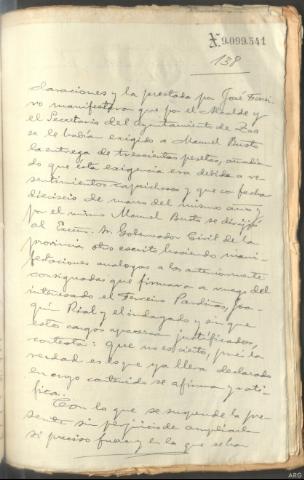 X 9.099.341
138
claraciones y la prestada por José Ferrei-
ro manifestara que por el Alcalde y
el Secretario del Ayuntamiento de Zas
se le habían exigido a Manuel Busto
la entrega de trescientas pesetas, añadien
do que esta exigencia era debida a re-
sentimientos caprichosos y que con fecha
dieciseis de marzo del mismo año y
por el mismo Manuel Busto se dirigió
al Excmo. Sr. Gobernador Civil de la
provincia otro escrito haciendo mani-
festaciones analogas a las anteriormente
consignadas que firmara a ruego del
interesado el Ferreiro Pardiñas, Joa-
quin Rial y el indagado y sin que
estos cargos aparezcan justificados,
contesta: que no es cierto, pues la
verdad es es que ya lleva declarado
en cuyo contenido se afirma y rati-
fica.
Con lo que se suspende la pre-
sente sin perjuicio de ampliarla
si preciso fuera y en la que se han
ARG